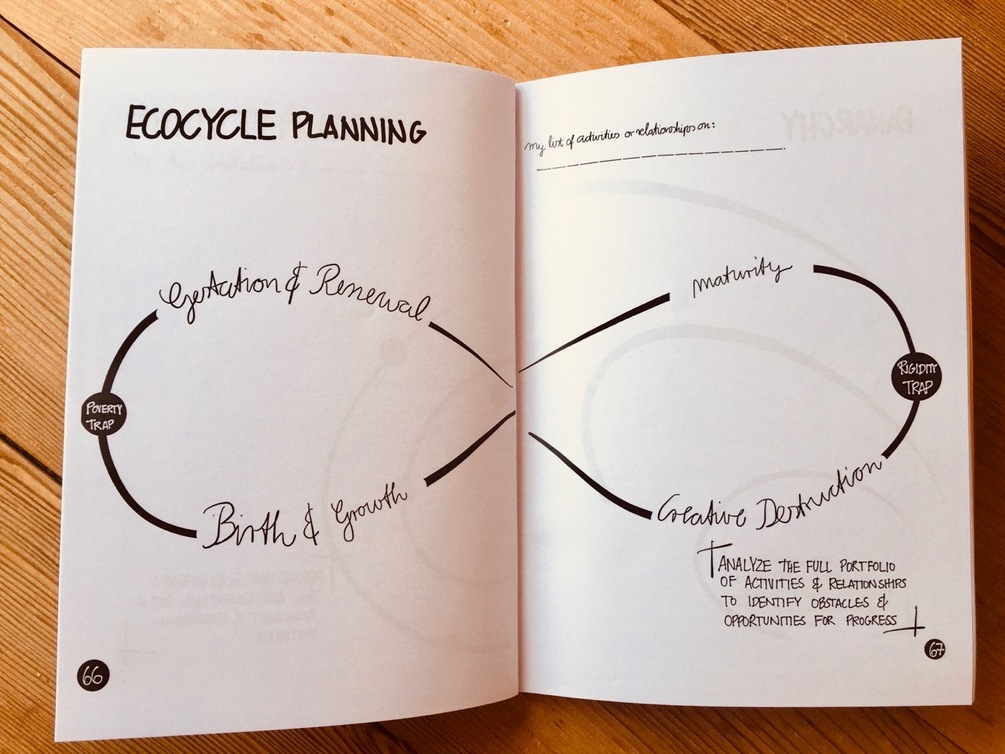 ECOCYCLE PLANNING
Gestation & Renewal
POVERTY
TRAP
Birth & Growth
66
my list of activities or relationships on:
maturity
RIGIDITY
TRAP
Creative Destruction
ANALYZE THE FULL PORTFOLIO
OF ACTIVITIES & RELATIONSHIPS
TO IDENTIFY OBSTACLES &
OPPORTUNITIES FOR PROGRESS
67
PANARCHY